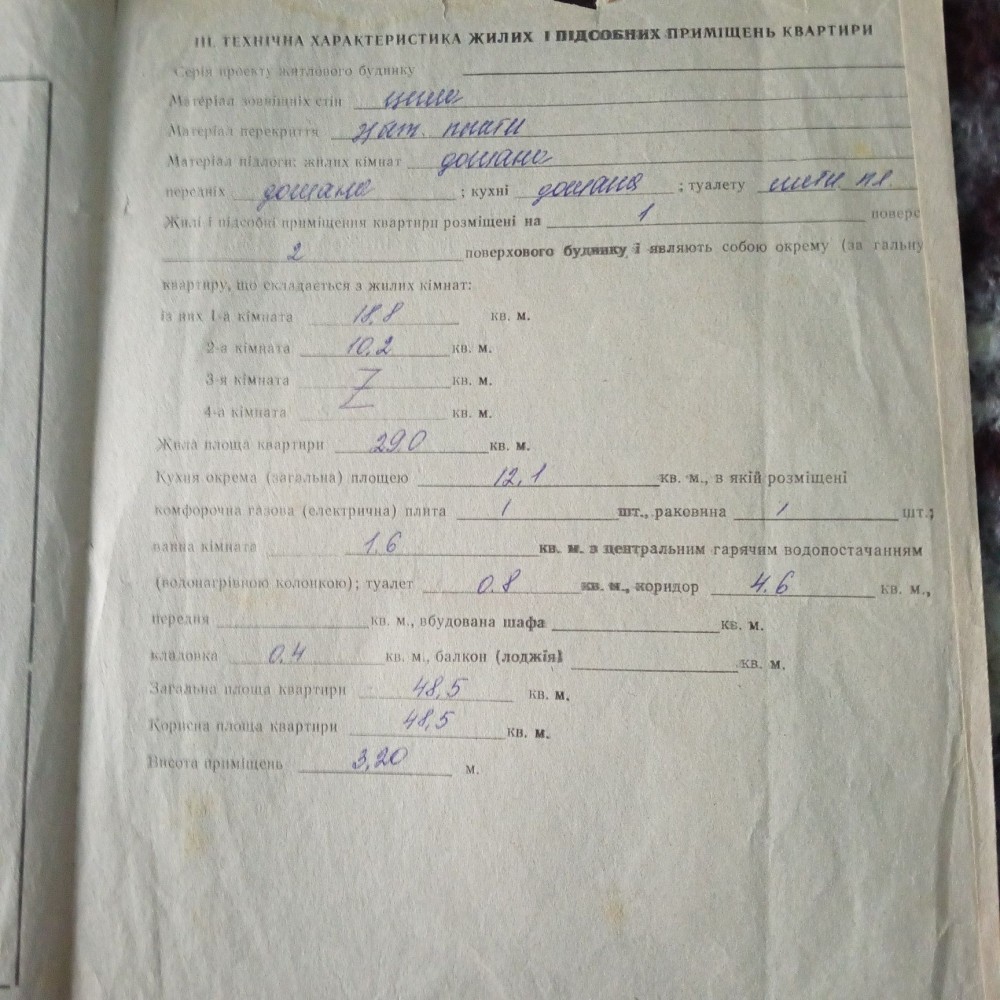 III. ТЕХНІЧНА ХАРАКТЕРИСТИКА ЖИЛИХ І ПІДСОБНИХ ПРИМІЩЕНЬ КВАРТИРИ
Серія проекту житлового будинку
Матеріал зовнішніх стін цегла
Матеріал перекриття зб/т. плати
Матеріал підлоги: жилих кімнат дощана
передніх дощана ; кухні дощана ; туалету
Жилі і підсобні приміщення квартири розміщені на 1 поверс
2 поверхового будинку і являють собою окрему (за гальну
квартиру, що складається з жилих кімнат:
із них 1-а кімната 18.8 кв. м.
2-а кімната 10.2 кв. м.
3-я кімната кв. м.
4-а кімната кв. м.
Жила площа квартири 29.0 кв. м.
Кухня окрема (загальна) площею 12,1 кв. м., в якій розміщені
комфорочна газова (електрична) плита 1 шт., раковина 1 шт.;
ванна кімната 1.6 кв. м. з центральним гарячим водопостачанням
(водонагрівною колонкою); туалет 0.8 кв. м., коридор 4.6 кв. м.,
передня кв. м., вбудована шафа кв. м.
кладовка 0.4 кв. м., балкон (лоджія) кв. м.
Загальна площа квартири 48,5 кв. м.
Корисна площа квартири 48,5 кв. м.
Висота приміщень 3,20 м.